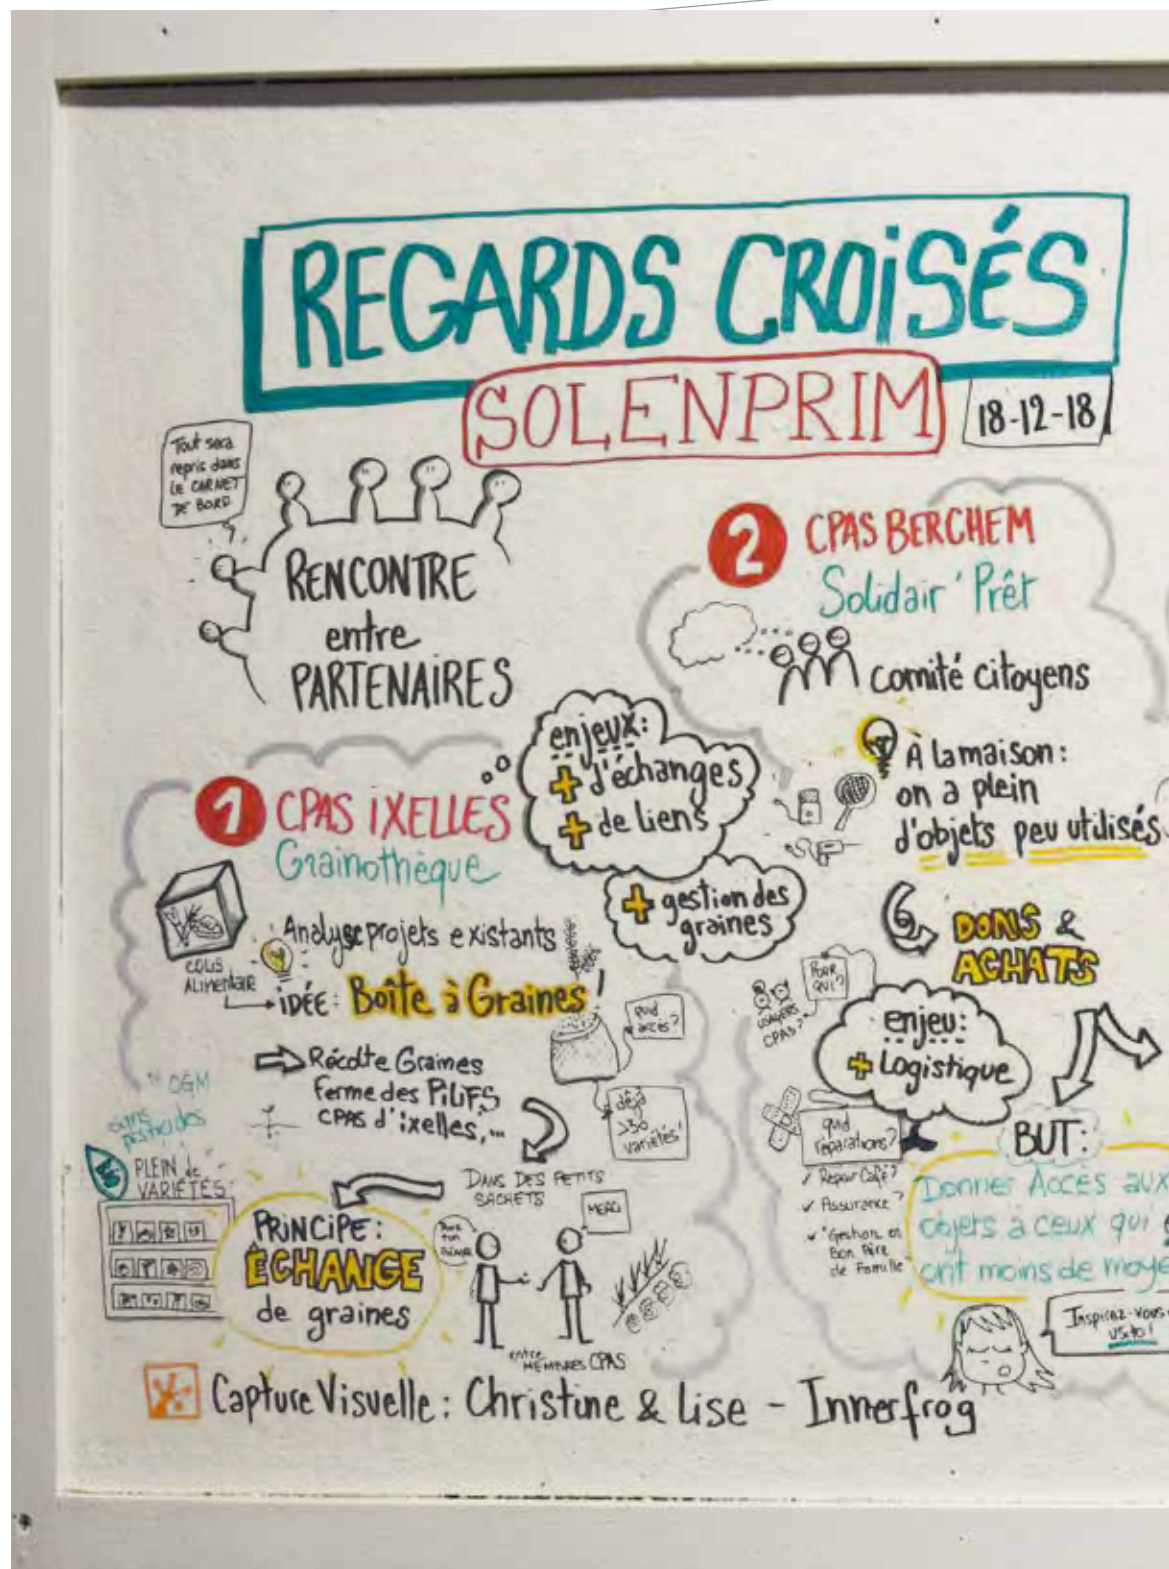 REGARDS CROiSÉS
SOLENPRIM
18-12-18
Tout sera
repris dans
LE CARNET
DE BORD
RENCONTRE
entre
PARTENAIRES
1 CPAS iXELLES
Grainothèque
enjeux:
+ d'échanges
+ de liens
+ gestion des
graines
COLIS
ALIMENTAIRE
Analyse projets existants
iDÉE: Boîte à Graines!
quid
accès?
Récolte Graines
Ferme des PiLiFS
CPAS d'ixelles,...
déjà
>30
variétés!
OGM
sans
pesticides
PLEIN de
VARIÉTÉS
DANS DES PETITS
SACHETS
PRINCIPE:
ÉCHANGE
de graines
MERCI
entre
MEMBRES CPAS
2 CPAS BERCHEM
Solidair'Prêt
comité citoyens
À la maison:
on a plein
d'objets peu utilisés
DONS &
ACHATS
POUR
QUI?
USAGERS
CPAS?
enjeu:
+ Logistique
quid
réparations?
✓ Repair Café?
✓ Assurance?
✓ "Gestion en
Bon Père
de Famille"
BUT:
Donner Accès aux
objets à ceux qui
ont moins de moye
Inspirez-vous
Capture Visuelle: Christine & Lise - Innerfrog